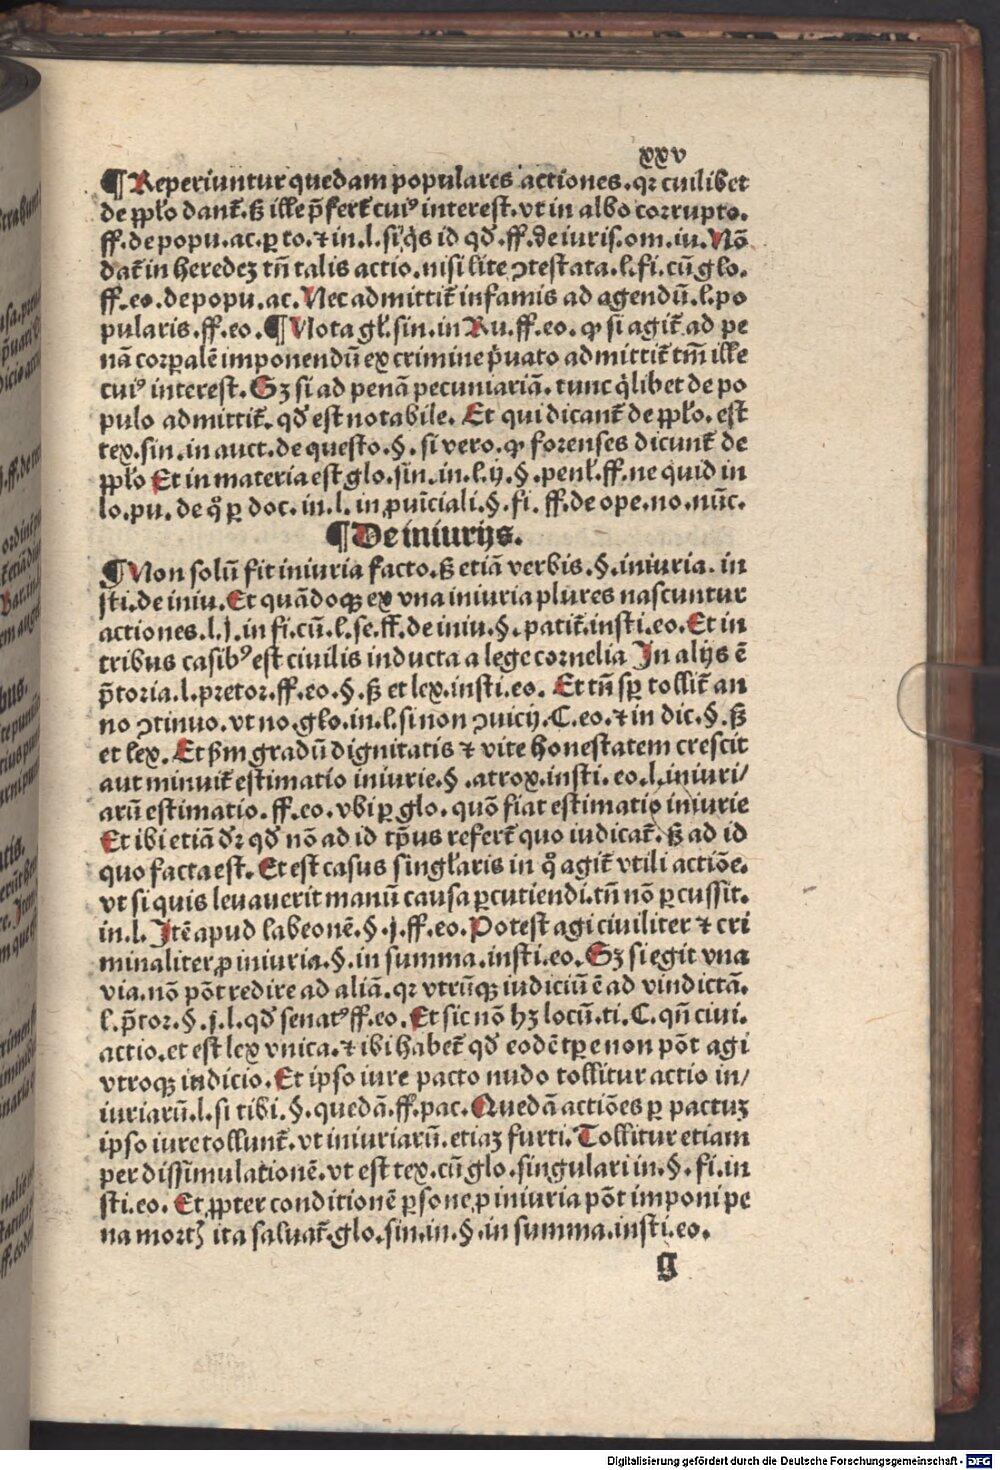 xxv
¶ Reperiuntur quedam populares actiones. qꝛ cuilibet
de pp̱ło dant᷑. ß ille p̄fert᷑ cuiꝰ interest. vt in albo corrupto.
ff. de popu. ac. ꝑ to. ⁊ in. l. si q̇s id qđ. ff. de iuris. om. iu. Nō
dat᷑ in heredeꝫ tn̄ talis actio. nisi lite ↄtestata. l. fi. cū glo.
ff. eo. de popu. ac. Nec admittit᷑ infamis ad agendū. l. po
pularis. ff. eo. ¶ Nota gł. sin. in Ru. ff. eo. ꝙ si agit᷑ ad pe
nā corꝑalē imponendū ex crimine ṗuato admittit᷑ tm̄ ille
cuiꝰ interest. Sꝫ si ad penā pecuniariā. tunc q̇libet de po
pulo admittit᷑. qđ est notabile. Et qui dicant᷑ de pp̱ło. est
tex. sin. in auct. de questo. §. si vero. ꝙ forenses dicunt᷑ de
pp̱ło Et in materia est glo. sin. in. l. ij. §. penł. ff. ne quid in
lo. pu. de q̊ ꝑ doc. in. l. in ꝓuīciali. §. fi. ff. de ope. no. nūc.
¶ De iniurijs.
¶ Non solū fit iniuria facto. ß etiā verbis. §. iniuria. in
sti. de iniu. Et quādoqꝫ ex vna iniuria plures nascuntur
actiones. l. j. in fi. cū. l. se. ff. de iniu. §. patit᷑. insti. eo. Et in
tribus casibꝰ est ciuilis inducta a lege cornelia In alijs ē
p̄toria. l. pretor. ff. eo. §. ß et lex. insti. eo. Et tn̄ sꝑ tollit᷑ an
no ↄtinuo. vt no. glo. in. l. si non ↄuicij. C. eo. ⁊ in dic. §. ß
et lex. Et ẜm gradū dignitatis ⁊ vite honestatem crescit
aut minuit᷑ estimatio iniurie. §. atrox. insti. eo. l. iniuri/
arū estimatio. ff. eo. vbi ꝑ glo. quō fiat estimatio iniurie
Et ibi etiā dꝛ̄ qđ nō ad id tp̄us refert᷑ quo iudicat᷑. ß ad id
quo facta est. Et est casus singłaris in q̊ agit᷑ vtili actiōe.
vt si quis leuauerit manū causa ꝑcutiendi. tn̄ nō ꝑcussit.
in. l. Itē apud labeonē. §. j. ff. eo. Potest agi ciuiliter ⁊ cri
minaliter ꝓ iniuria. §. in summa. insti. eo. Sꝫ si egit vna
via. nō pōt redire ad aliā. qꝛ vtrūqꝫ iudiciū ē ad vindictā.
l. p̄tor. §. j. l. qđ senatꝰ ff. eo. Et sic nō hꝫ locū. ti. C. qn̄ ciui.
actio. et est lex vnica. ⁊ ibi habet᷑ qđ eodē tꝑe non pōt agi
vtroqꝫ iudicio. Et ipso iure pacto nudo tollitur actio in/
iuriarū. l. si tibi. §. quedā. ff. pac. Quedā actiōes ꝑ pactuꝫ
ipso iure tollunt᷑. vt iniuriarū. etiaꝫ furti. Tollitur etiam
per dissimulationē. vt est tex. cū glo. singulari in. §. fi. in
sti. eo. Et ꝓpter conditionē ꝑsone ꝓ iniuria pōt imponi pe
na mortꝭ ita saluat᷑. glo. sin. in. §. in summa. insti. eo.
g
Digitalisierung gefördert durch die Deutsche Forschungsgemeinschaft - DFG